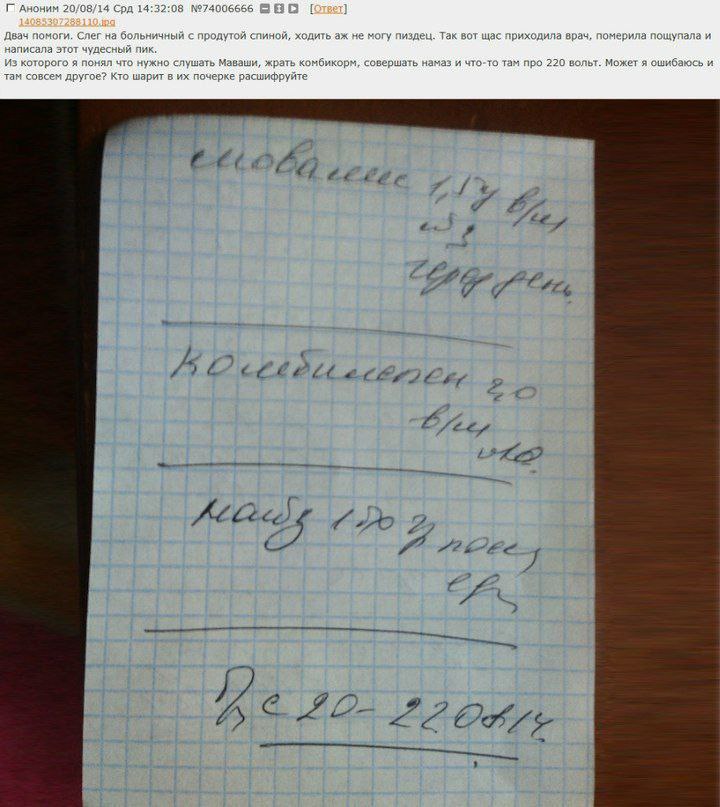 Аноним 20/08/14 Срд 14:32:08 №74006666 [Ответ]
14085307288110.jpg
Двач помоги. Слег на больничный с продутой спиной, ходить аж не могу пиздец. Так вот щас приходила врач, померила пощупала и
написала этот чудесный пик.
Из которого я понял что нужно слушать Маваши, жрать комбикорм, совершать намаз и что-то там про 220 вольт. Может я ошибаюсь и
там совсем другое? Кто шарит в их почерке расшифруйте
мовалис 1,5 в/м
№3
через день
Комбилипен 2,0
в/м
№10
150
с 20-22